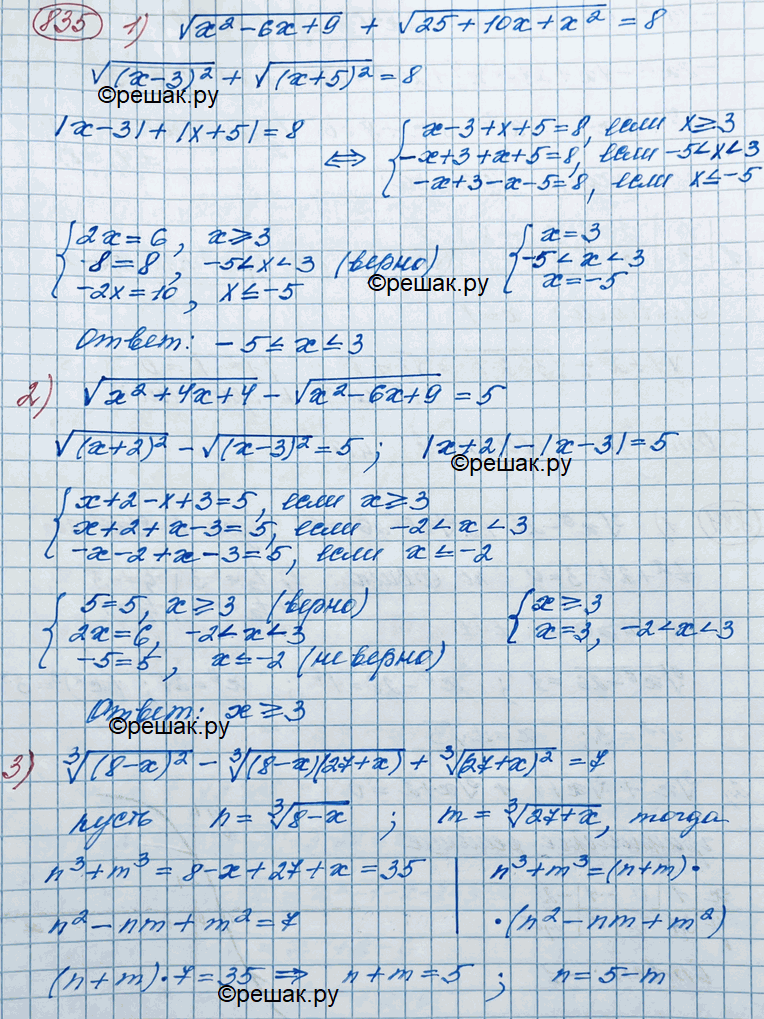 835 1) √(x²-6x+9) + √(25+10x+x²) = 8
√((x-3)²) + √((x+5)²) = 8
©решак.ру
|x-3|+|x+5|=8 ⟺ { x-3+x+5=8, если x≥3
-x+3+x+5=8, если -5<x<3
-x+3-x-5=8, если x≤-5
{ 2x=6, x≥3 { x=3
8=8, -5<x<3 (верно) -5<x<3
-2x=10, x≤-5 x=-5
©решак.ру
Ответ: -5≤x≤3
2) √(x²+4x+4) - √(x²-6x+9) = 5
√((x+2)²) - √((x-3)²) = 5; |x+2|-|x-3|=5
©решак.ру
{ x+2-x+3=5, если x≥3
x+2+x-3=5, если -2<x<3
-x-2+x-3=5, если x≤-2
{ 5=5, x≥3 (верно) { x≥3
2x=6, -2<x<3 x=3, -2<x<3
-5=5, x≤-2 (неверно)
Ответ: x≥3
©решак.ру
3) ∛((8-x)²) - ∛((8-x)(27+x)) + ∛((27+x)²) = 7
пусть n=∛(8-x); m=∛(27+x), тогда
n³+m³=8-x+27+x=35 | n³+m³=(n+m)·
n²-nm+m²=7 | ·(n²-nm+m²)
(n+m)·7=35 ⇒ n+m=5; n=5-m
©решак.ру